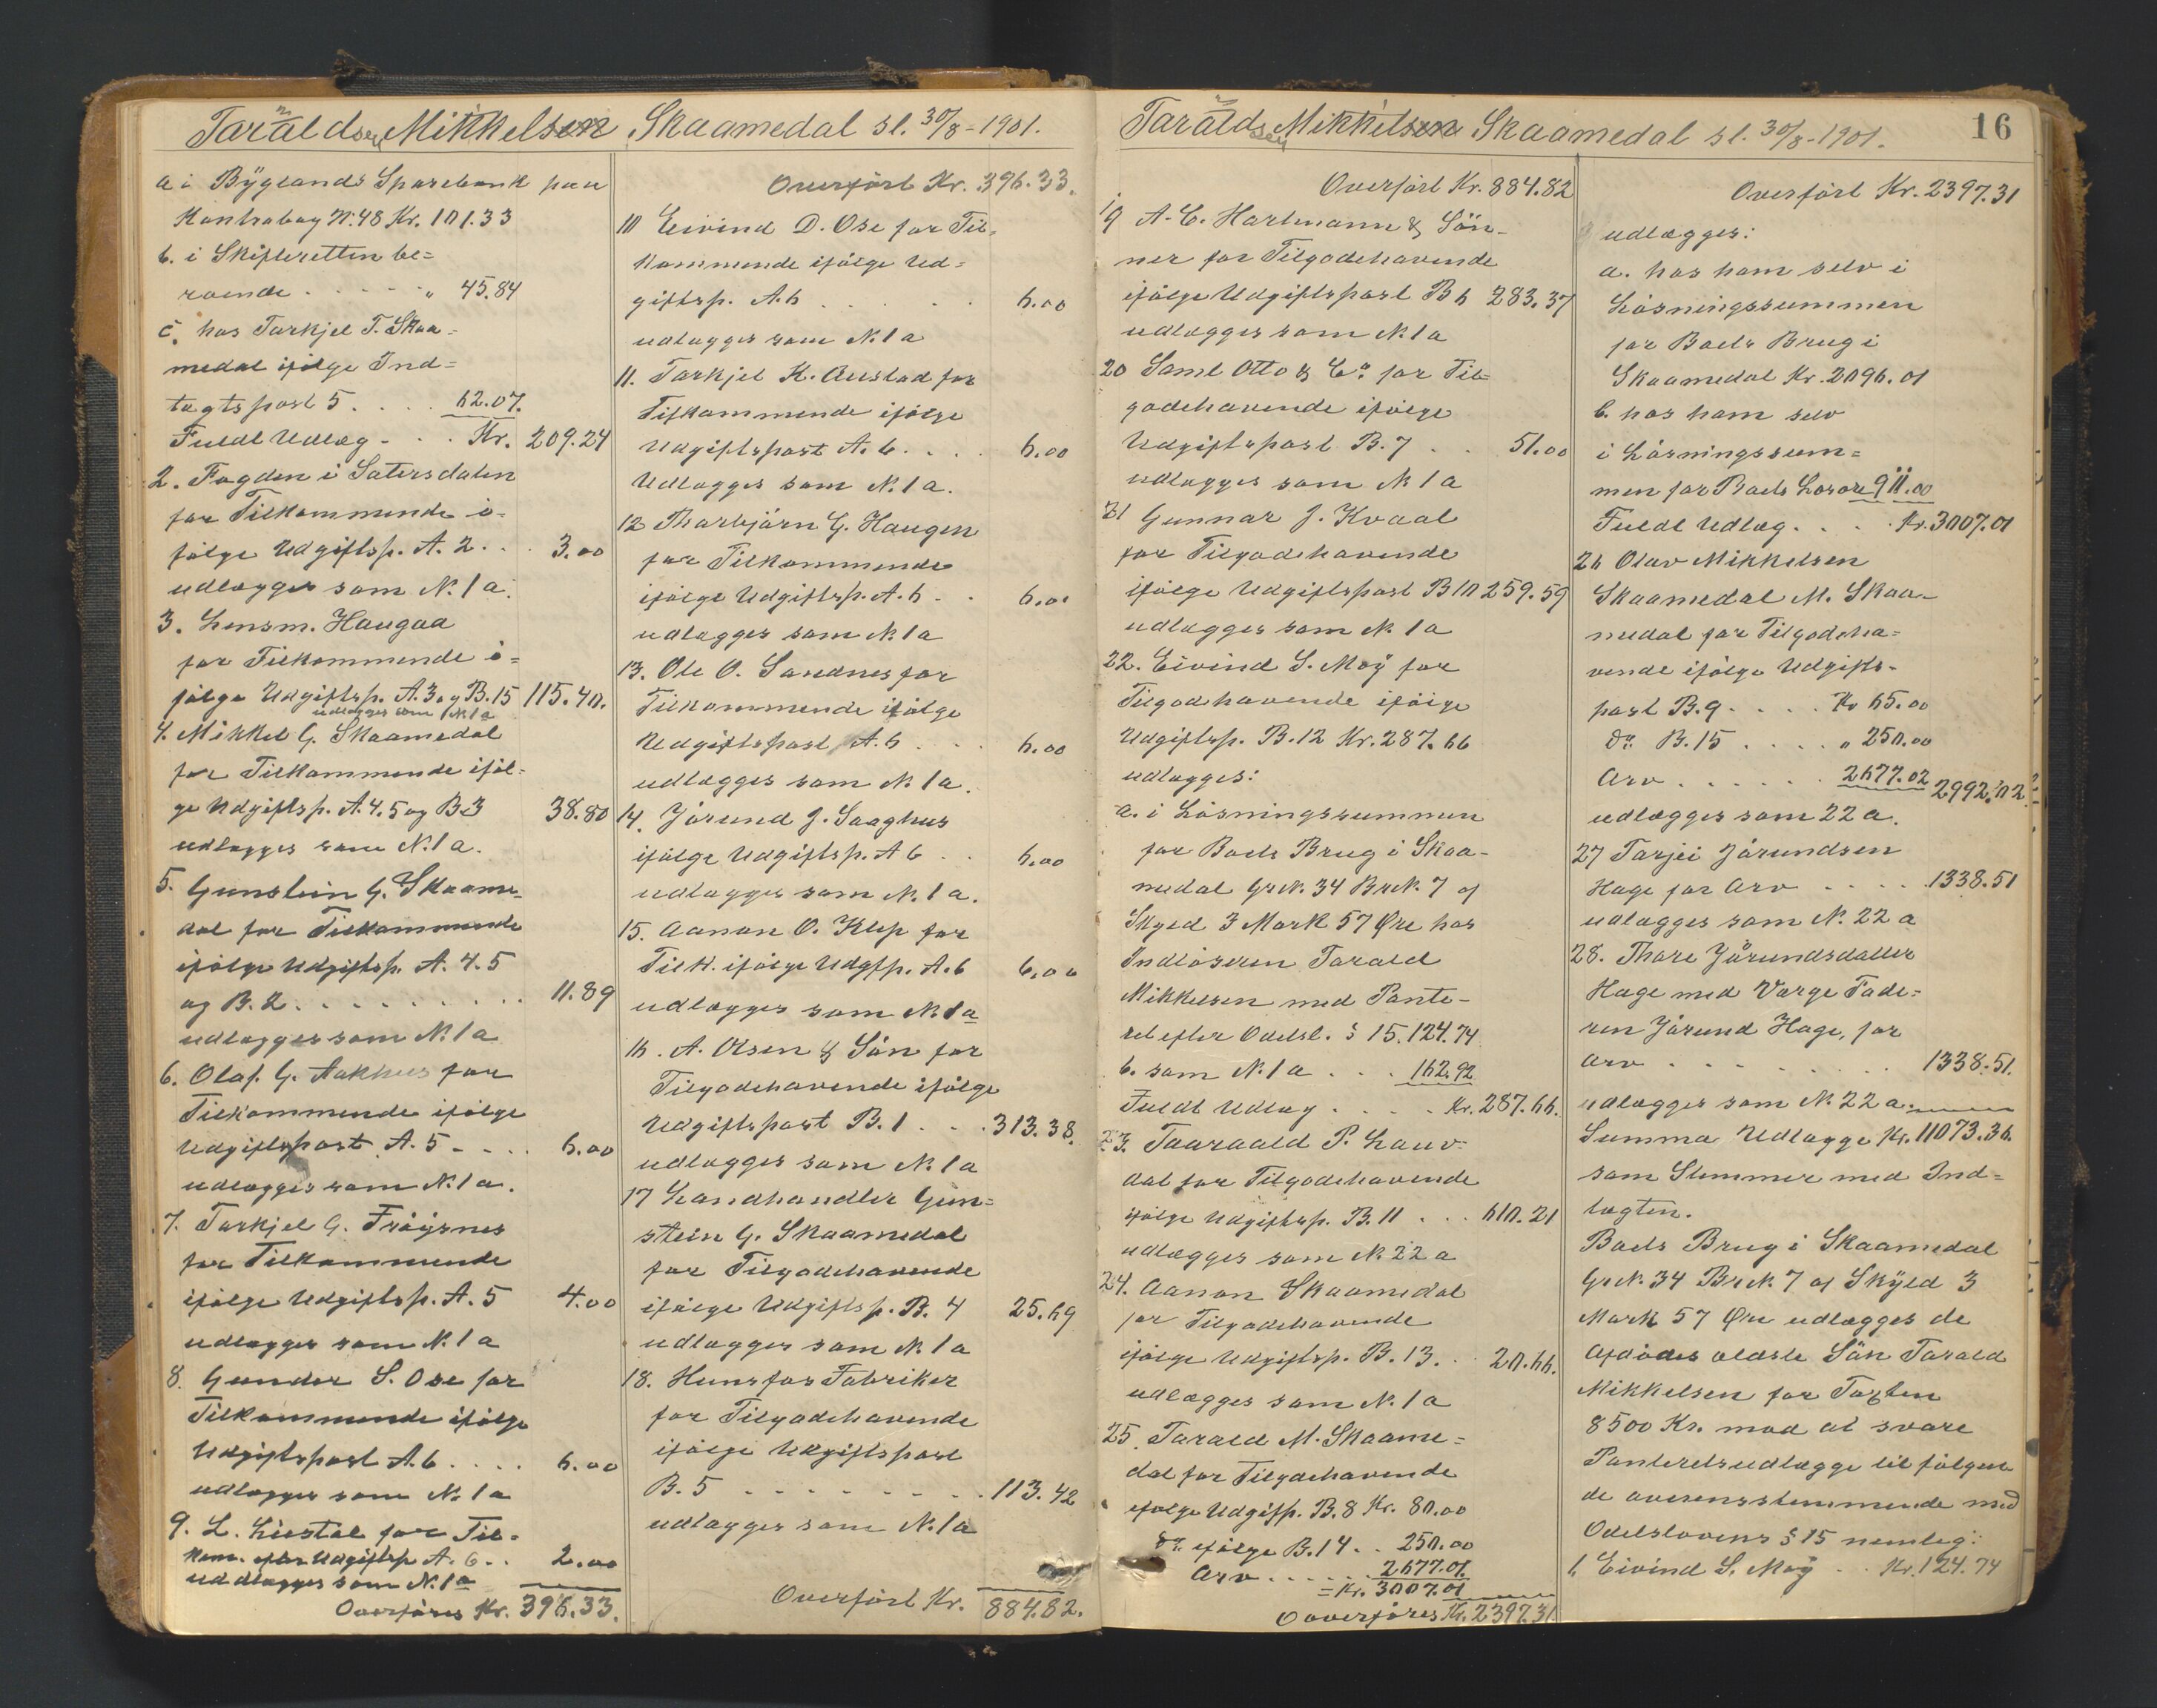 Taraldsen Mikkelsen Skaamedal sl. 30/8-1901.
a i Byglands Sparebank paa
Kontrabog N. 48 Kr. 101.33
b. i Skifteretten be=
roende . . . . . „ 45.84
c. hos Tarkjel T. Skaa=
medal ifölge Ind=
tægtspost 5 . . . . 62.07.
Fuldt Udlæg - . . Kr. 209.24
2. Fogden i Sætersdalen
for Tilkommende i=
fölge Udgiftsp. A. 2 . . 3.00
udlægges som N. 1 a.
3. Lensm. Haugaa
for Tilkommende i=
fölge Udgiftsp. A. 3 og B. 15 115.40.
udlægges som N. 1 a
4. Mikkel G. Skaamedal
for Tilkommende iföl=
ge Udgiftsp. A. 4. 5 og B 3 38.80
udlægges som N. 1 a.
5. Gunstein G. Skaame=
dal for Tilkommende
ifölge Udgiftsp. A. 4. 5
og B. 2 . . . . . . . . . 11.89
udlægges som N. 1 a
6. Olaf. G. Aakhus for
Tilkommende ifölge
Udgiftspost A. 5 - . . . 6.00
udlægges som N. 1 a.
7. Tarkjel G. Fröysnes
for Tilkommende
ifölge Udgiftsp. A. 5 4.00
udlægges som N. 1 a
8. Gunder S. Ose for
Tilkommende ifölge
Udgiftspost A. 6 . . . . 6.00
udlægges som N. 1 a
9. L. Liestøl for Til=
kom. efter Udgiftsp A. 6 . . 2.00
uddlægges som N. 1 a
Overföres Kr. 396.33.
Overfört Kr. 396.33.
10 Eivind D. Ose for Til=
kommende ifölge Ud=
giftsp. A. 6 . . . . . . 6.00
udlægges som N. 1 a
11. Tarkjel K. Austad for
Tilkommende ifölge
Udgiftspost A. 6 . . . . 6.00
Udlægges som N. 1 a.
12 Thorbjörn G. Haugen
for Tilkommende
ifölge Udgiftsp. A. 6 - . 6.00
udlægges som N. 1 a
13. Ole O. Sandnes for
Tilkommende ifölge
Udgiftspost A. 6 . . . 6.00
udlægges som N. 1 a.
14. Jörund J. Saaghus
ifölge Udgiftsp. A 6 . . 6.00
udlægges som N. 1 a.
15. Aanon O. Klep for
Tilk. ifölge Udgfp. A. 6 6.00
udlægges som N. 1 a
16. A. Olsen & Sön for
Tilgodehavende ifölge
Udgiftspost B. 1 . . . 313.38.
udlægges som N. 1 a
17 Landhandler Gun=
stein G. Skaamedal
for Tilgodehavende
ifölge Udgiftsp. B. 4 25.69
udlægges som N. 1 a
18. Hunsfos Fabriker
for Tilgodehavende
ifölge Udgiftspost
B. 5 - - - - - - - - . 113.42
udlægges som N. 1 a
Overfört Kr. 884.82.
Taraldsen Mikkelsen Skaamedal sl. 30/8-1901.
16
Overfört Kr. 884.82
19 A. C. Hartmann & Sön=
ner for Tilgodehavende
ifölge Udgiftspost B 6 283.37
udlægges som N. 1 a
20 Saml Otto & Co for Til=
godehavende ifölge
Udgiftspost B. 7 . . 51.00
udlægges som N. 1 a
21 Gunnar J. Kvaal
for Tilgodehavende
ifölge Udgiftspost B 10 259.59
udlægges som N. 1 a
22. Eivind S. Moÿ for
Tilgodhavende ifölge
Udgiftsp. B. 12 Kr. 287.66
udlægges:
a. i Lösningssummen
for Boets Brug i Skaa=
medal Gr.N. 34 Br.N. 7 af
Skyld 3 Mark 57 Øre hos
Indlöseren Tarald
Mikkelsen med Pante=
ret efter Odelsl. § 15. 124.74
b. som N. 1 a . . . 162.92
Fuldt Udlæg . . . . Kr. 287.66.
23. Taaraald P. Lauv=
dal for Tilgodehavende
ifölge Udgiftsp. B. 11 . . . 610.21
udlægges som N. 22 a
24. Aanon Skaamedal
for Tilgodehavende
ifölge Udgiftsp. B. 13. . . 20.66.
udlægges som N. 1 a
25. Tarald M. Skaame=
dal for Tilgodehavende
ifölge Udgifp. B. 8 Kr. 80.00
do ifölge B. 14 . . 250.00
Arv . . . . . . 2677.01
= Kr. 3007.01
Overföres Kr. 2397.31
Overfört Kr. 2397.31
udlægges:
a. hos ham selv i
Lösningssummen
for Boets Brug i
Skaamedal Kr. 2096.01
b. hos ham selv
i Lösningssum=
men for Boets Lösöre 911.00
Fuldt Udlæg. . . . Kr. 3007.01
26 Olav Mikkelsen
Skaamedal M. Skaa=
medal for Tilgodeha=
vende ifölge Udgifts=
post B. 9 - . . . Kr 65.00
do B. 15 . . . . „ 250.00
Arv . . . . . . 2677.02 2992.02
udlægges som 22 a.
27 Tarjei Jörundsen
Hage for Arv . . . . 1338.51
udlægges som N. 22 a
28. Thore Jörundsdatter
Hage med Værge Fade=
ren Jörund Hage, for
Arv . . . . . . . . . 1338.51.
udlægges som N. 22 a.
Summa Udlægge Kr. 11073.36.
som Stemmer med Ind=
tægten.
Boets Brug i Skaamedal
Gr.N. 34 Br.N. 7 af Skÿld 3
Mark 57 Øre udlægges de
Afdödes ældste Sön Tarald
Mikkelsen for Taxten
8500 Kr. mod at svare
Panteretsudlægge til fölgen
de overensstemmende med
Odelslovens § 15 nemlig:
1. Eivind S. Moÿ - . . Kr. 124.74